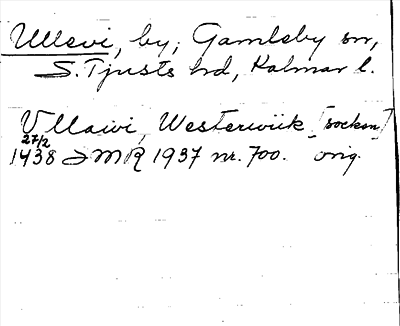 Ullevi, by, Gamleby sn,
S. Tjusts hd, Kalmar l.
Vllaivi, Westerwiik [socken]
27/2
1438 SMR 1937 nr. 700. orig.